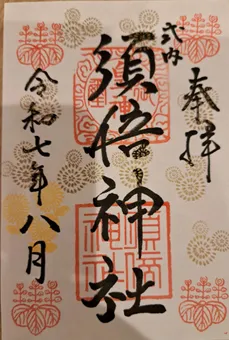 奉拝
式内
須倍神社
令和七年八月